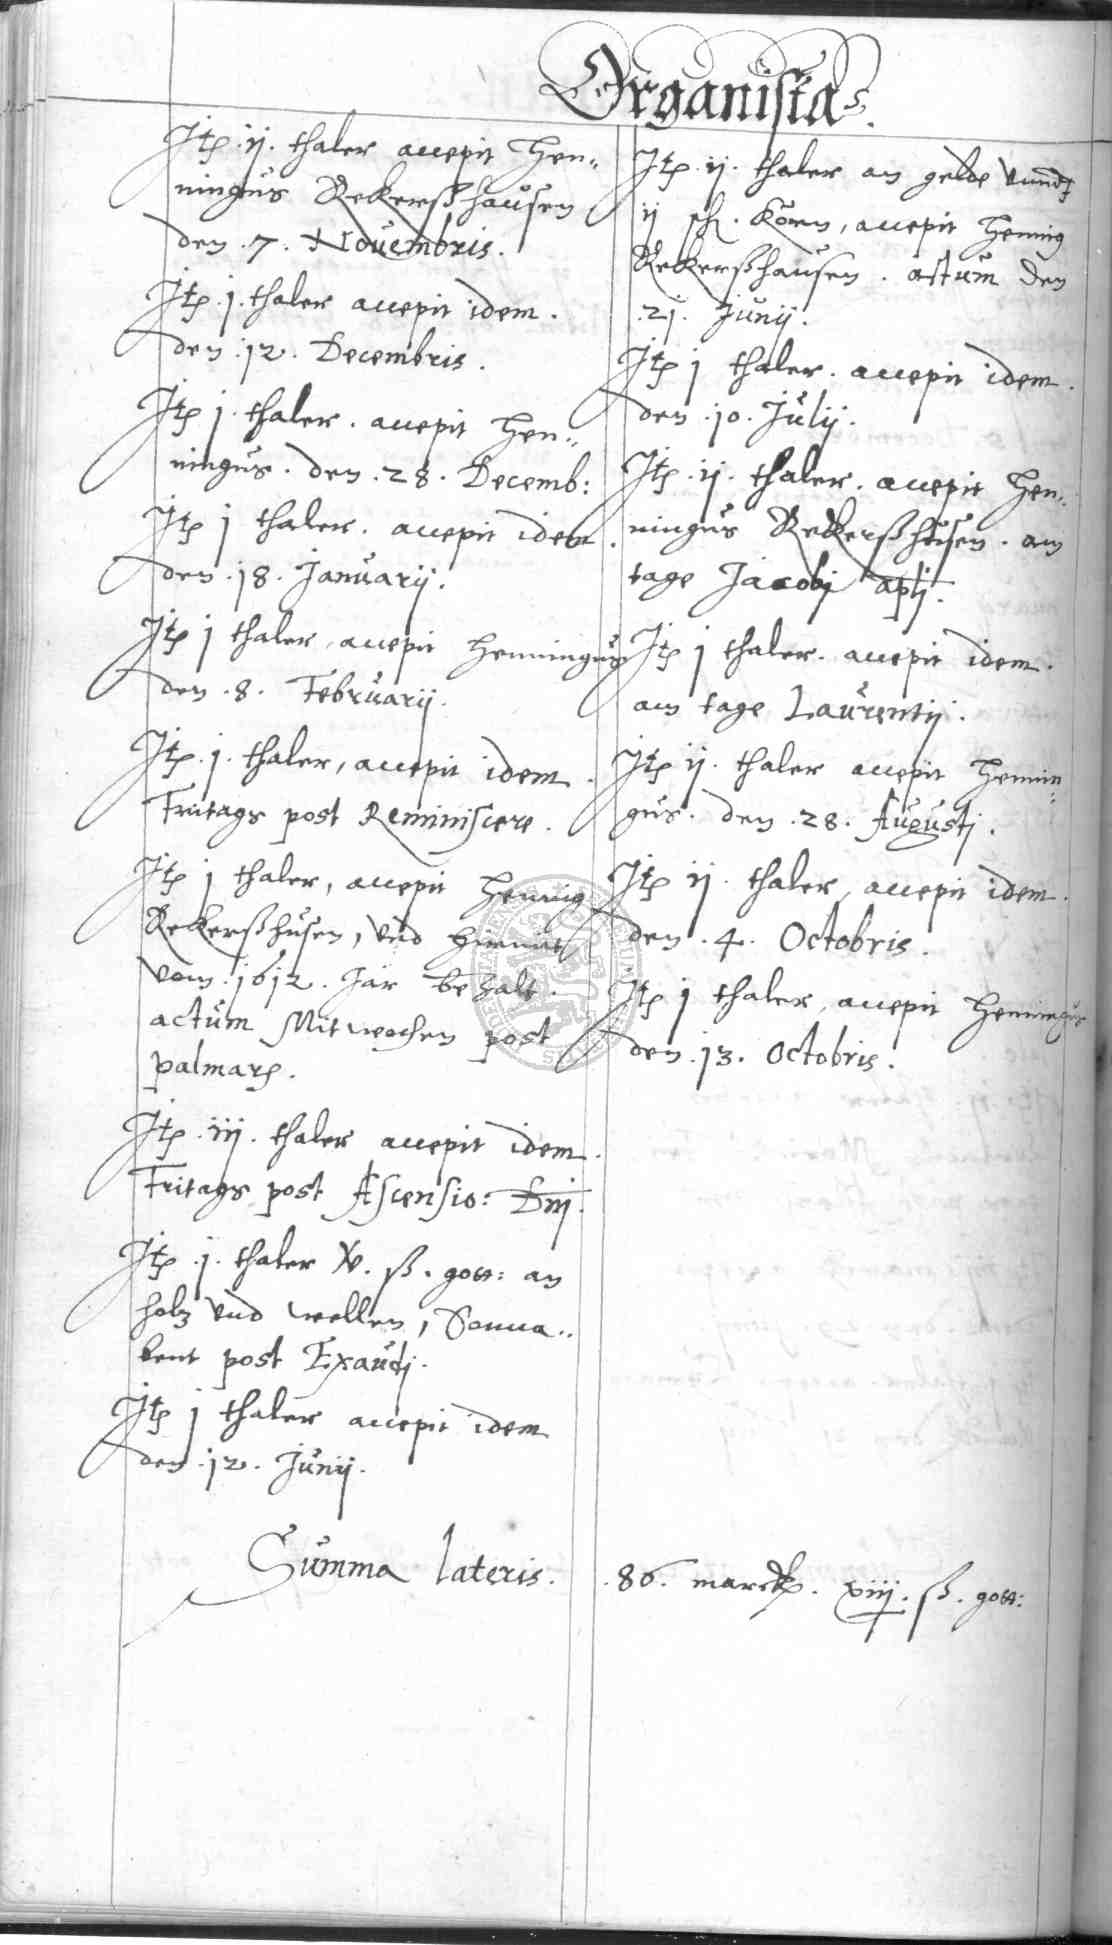 Organista.
Itē .ij. thaler accepit Hen=
ningus Rekerßhausen
den .7. Novembris.
Itē .j. thaler accepit idem.
den .12. Decembris.
Itē j. thaler. accepit Hen=
ningus. den .28. Decemb:
Itē j thaler. accepit idem.
den .18. Januarij.
Itē j thaler, accepit Henningus
den .8. Februarij.
Itē .j. thaler, accepit idem.
Fritags post Reminiscere.
Itē j thaler, accepit Hennig
Rekerßhusen, vnd hiemit
vom .1612. Jar bezalt.
actum Mitwochen post
palmarū.
Itē .iij. thaler accepit idem.
Fritags post Ascensio: Dnj.
Itē .j. thaler xv. ß. gott: an
holtz vnd wellen, Sonna=
bent post Exaudj.
Itē j thaler accepit idem
den .12. Junij.
Itē .ij. thaler an gelde vnndt
ij sch. Korn, accepit Hennig
Rekerßhausen. actum den
.21. Junij.
Itē j thaler. accepit idem.
den .10. Julij.
Itē .ij. thaler. accepit Hen=
ningus Rekerßhusen. am
tage Jacobj apli.
Itē j thaler. accepit idem.
am tage Laurentij.
Itē ij. thaler accepit Hennin=
gus. den .28. Augustj.
Itē ij. thaler, accepit idem.
den .4. Octobris.
Itē j thaler, accepit Henningus
den .13. Octobris.
Summa lateris. .86. marck. xiij. ß. gott: